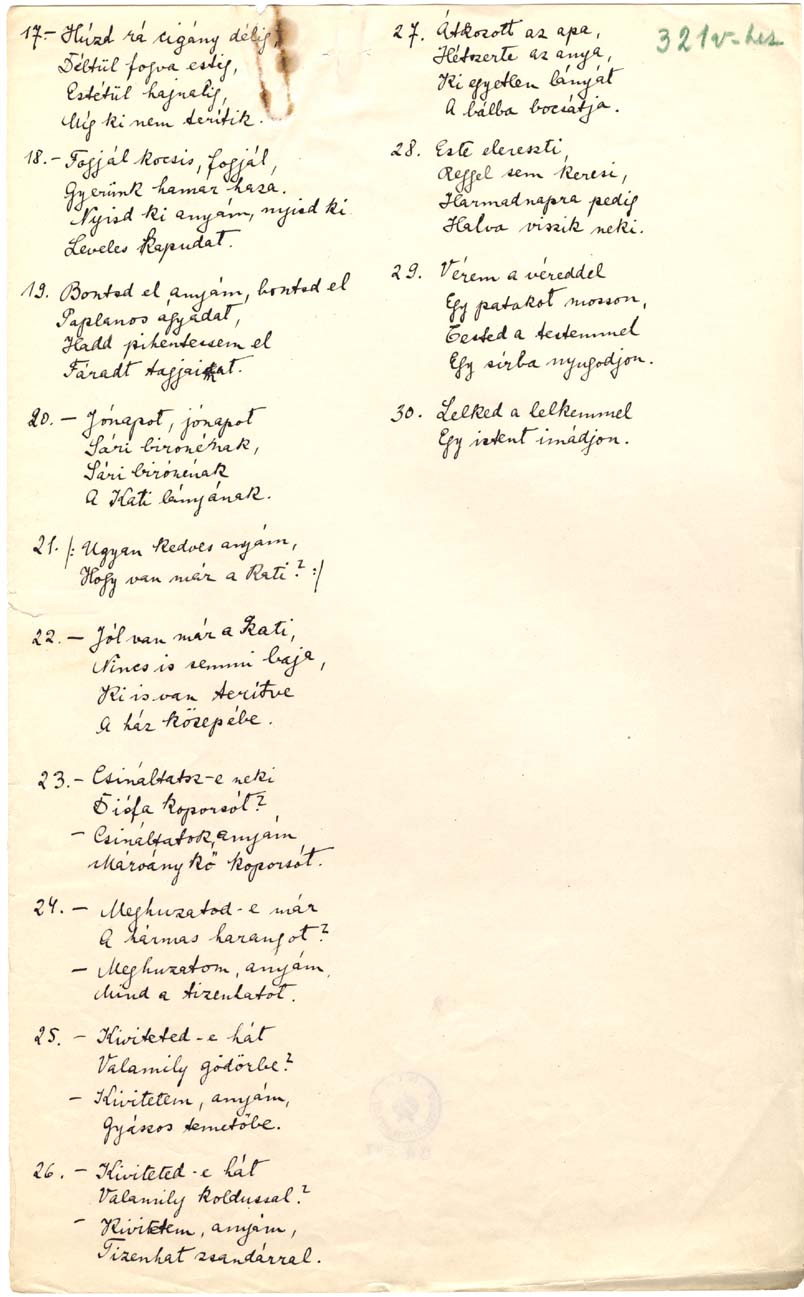 17.- Húzd rá cigány délig,
Déltül fogva estig,
Estétül hajnalig,
Míg ki nem terítik.
18.- Fogjál kocsis, fogjál,
Gyerünk hamar haza.
Nyisd ki anyám, nyisd ki
Leveles kapudat.
19. Bontsd el anyám, bontsd el
Paplanos ágyadat,
Hadd pihentessem el
Fáradt tagjaimat.
20. - Jónapot, jónapot
Sári birónénak,
Sári birónénak
A Kati lányának.
21. /: Ugyan kedves anyám,
Hogy van már a Kati? :/
22. - Jól van már a Kati,
Nincs is semmi baja,
Ki is van terítve
A ház közepébe.
23. - Csináltatsz-e neki
Diófa koporsót?
- Csináltatok, anyám
Márvány kő koporsót.
24. - Meghuzatod-e már
A hármas harangot?
- Meghuzatom, anyám,
Mind a tizenhatot.
25. - Kiviteted-e hát
Valamily gödörbe?
- Kivitetem, anyám,
Gyászos temetőbe.
26. - Kiviteted-e hát
Valamily koldussal?
- Kivitetem, anyám,
Tizenhat zsandárral.
321v-hez
27. Átkozott az apa,
Hétszerte az anya,
Ki egyetlen lányát
A bálba bocsátja.
28. Este elereszti,
Reggel sem keresi,
Harmadnapra pedig
Halva viszik neki.
29. Vérem a véreddel
Egy patakot mosson,
Tested a testemmel
Egy sírba nyugodjon.
30. Lelked a lelkemmel
Egy istent imádjon.